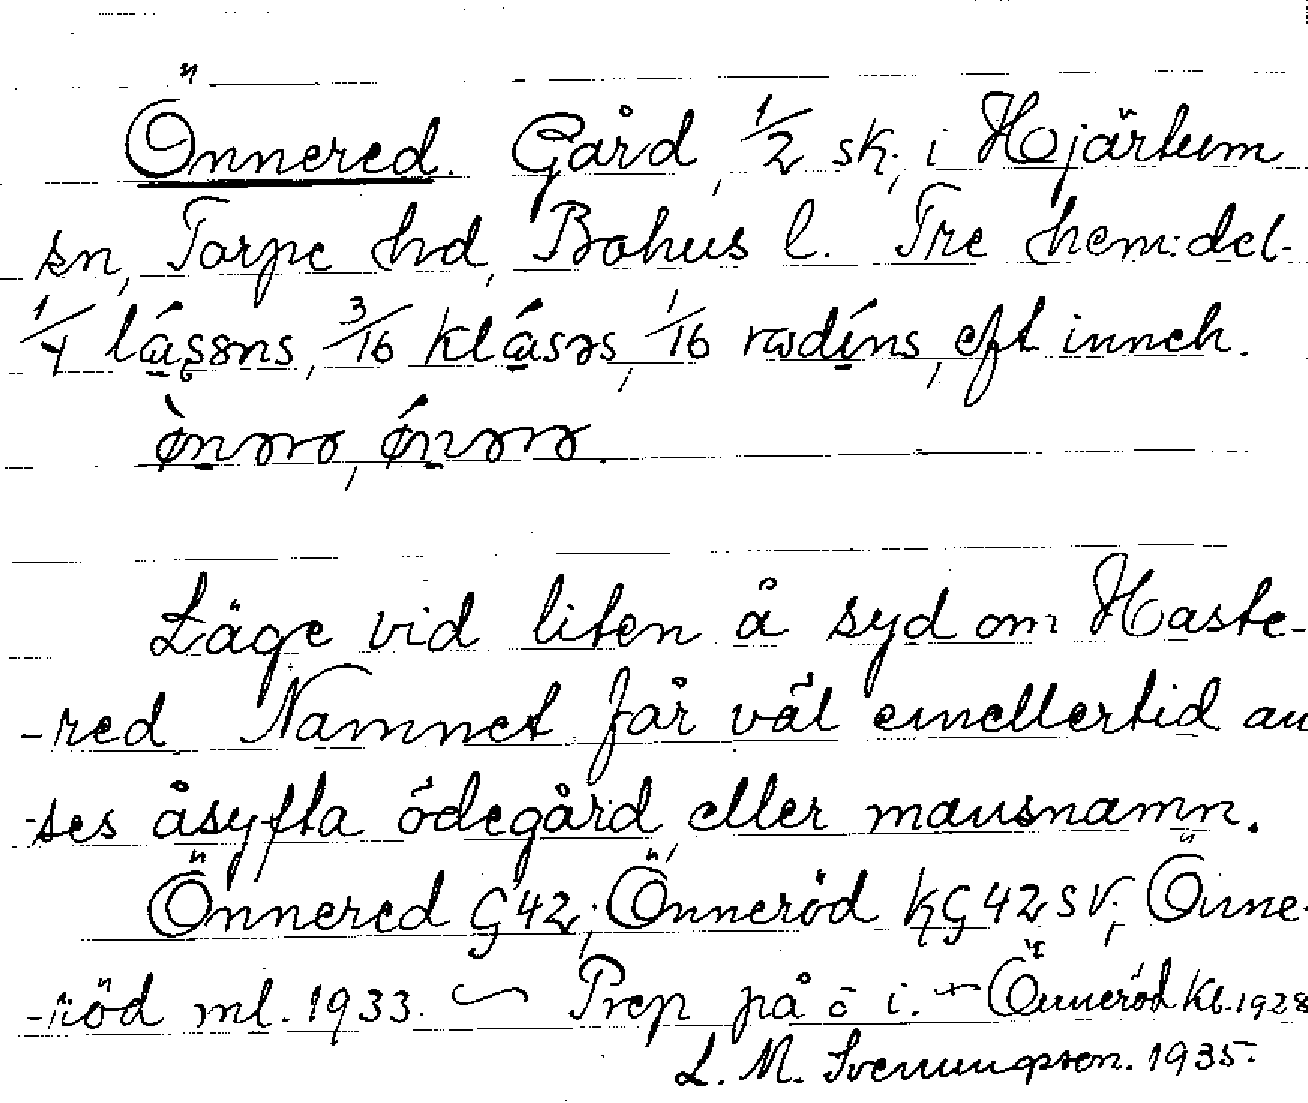 Önnered. Gård, 1/2 sk, i Hjärtum
sn, Torpe hd, Bohus l. Tre hem:del-
1/4 lássns, 3/16 klásəs, 1/16 rasdíns, eft inneh.
ø̀nərə, ǿnərə.
Läge vid liten å syd om Haste-
-red. Namnet får väl emellertid an
-ses åsyfta ödegård, eller mansnamn.
Önnered G 42; Önneröd KG 42 SV; Önne-
-röd ml. 1933. ~ Prep på ö i. + Önneröd Kb. 1928
L. M. Svenungsson. 1935.